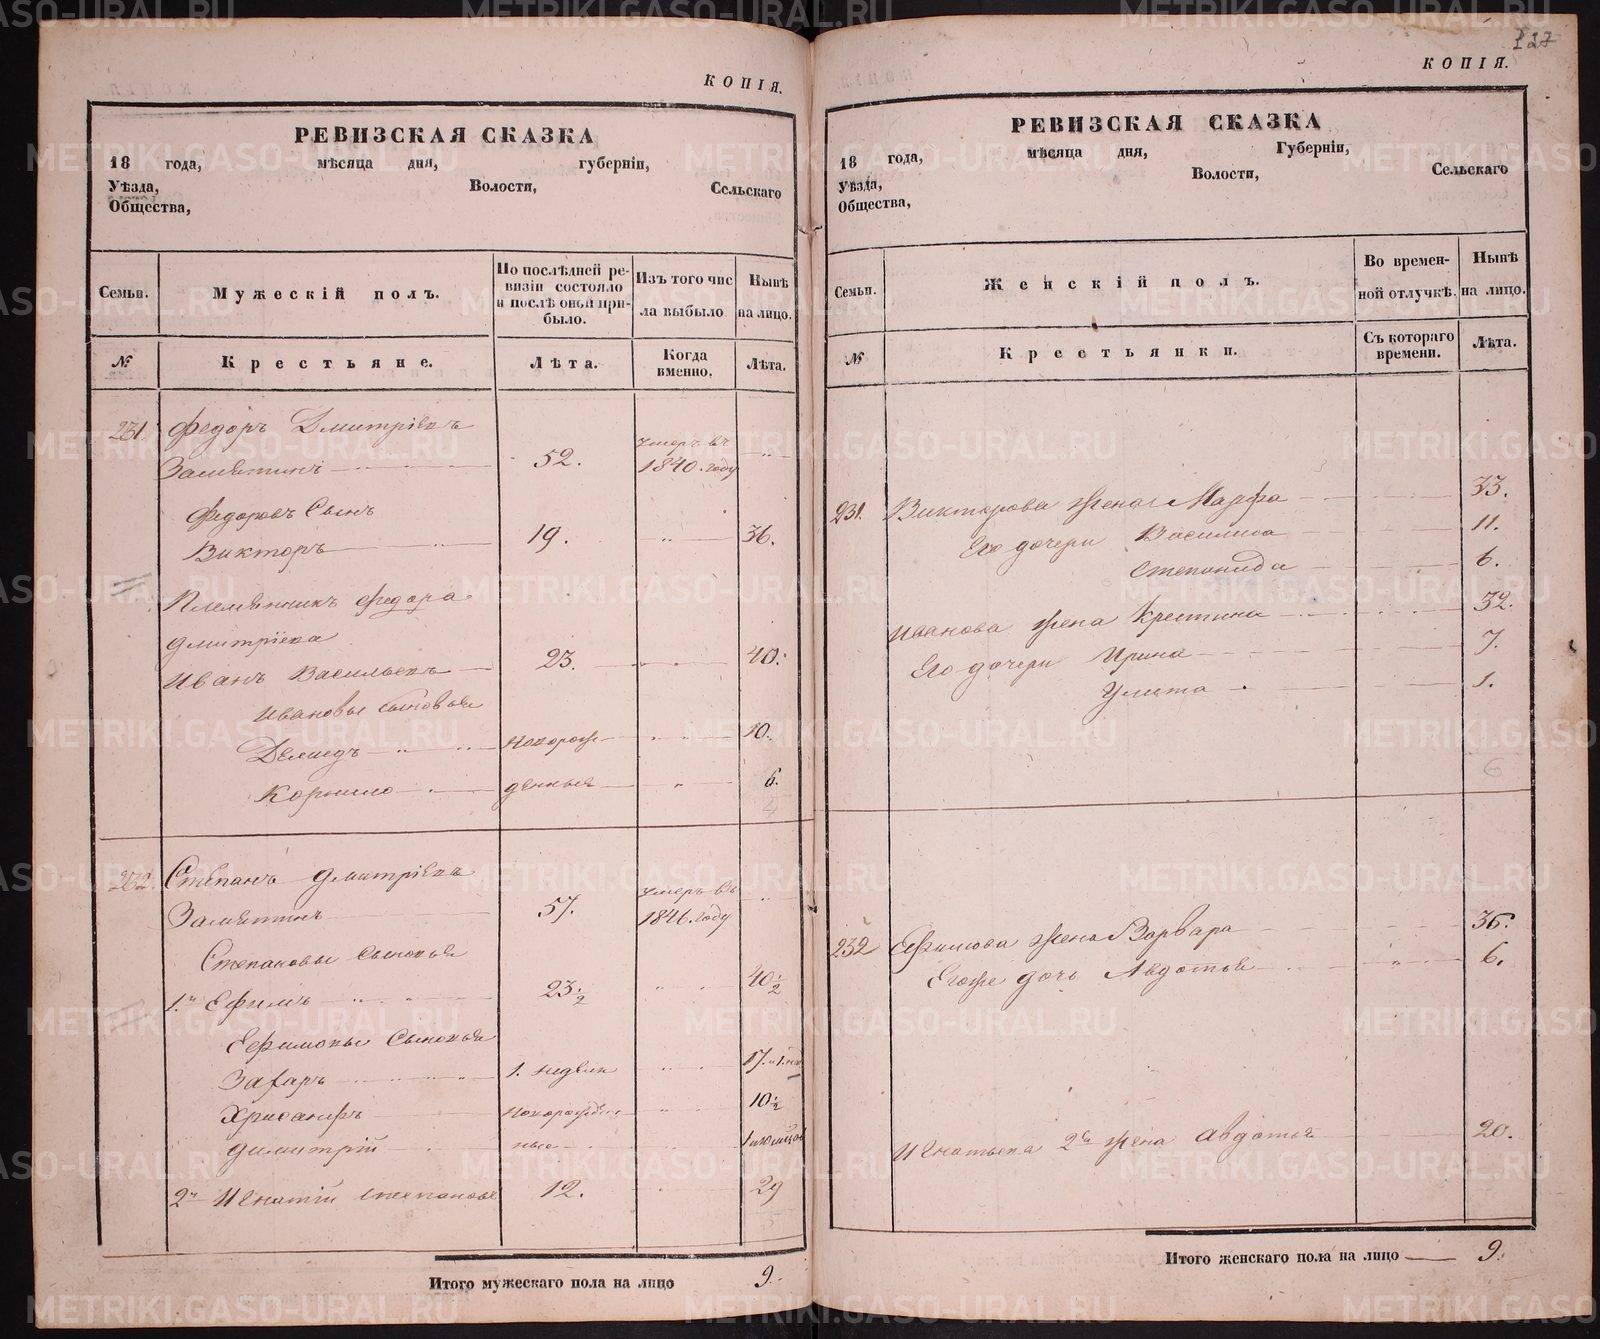 КОПІЯ.
РЕВИЗСКАЯ СКАЗКА
18 года, мѣсяца дня, губерніи,
Уѣзда, Волости, Сельскаго
Общества,
Семьи. Мужескій полъ. По послѣдней ревизіи состояло и послѣ оной прибыло. Изъ того числа выбыло Нынѣ на лицо.
№ Крестьяне. Лѣта. Когда именно. Лѣта.
231. Федоръ Дмитріевъ
Замятинъ 52. Умеръ въ 1840. году
Федоровъ Сынъ
Викторъ 19. 36.
Племянникъ Федора
Дмитріева
Иванъ Васильевъ 23. 40.
Ивановы сыновья
Демидъ новорож 10.
Корнило денныя 6.
232. Степанъ Дмитріевъ
Замятинъ 57. Умеръ въ 1846. году
Степановы сыновья
1.й Ефимъ 23 1/2 40 1/2
Ефимовы Сыновья
Захаръ 1. недели 17. и 1. не
Хрисанфъ новорожден 10 1/2
Димитрій ные
2й Игнатій Степановъ 12. 29
Итого мужескаго пола на лицо 9.
127
КОПІЯ.
РЕВИЗСКАЯ СКАЗКА
18 года, мѣсяца дня, Губерніи,
Уѣзда, Волости, Сельскаго
Общества,
Семьи. Женскій полъ. Во временной отлучкѣ. Нынѣ на лицо.
№ Крестьянки. Съ котораго времени. Лѣта.
231. Викторова жена Марфа 33.
Его дочери Василиса 11.
Степанида 6.
Иванова жена Крестина 32.
Его дочери Ирина 7.
Улита 1.
6
232 Ефимова жена Варвара 36.
Егоже дочь Авдотья 6.
Игнатьева 2я жена Авдотья 20.
Итого женскаго пола на лицо 9.
METRIKI.GASO-URAL.RU